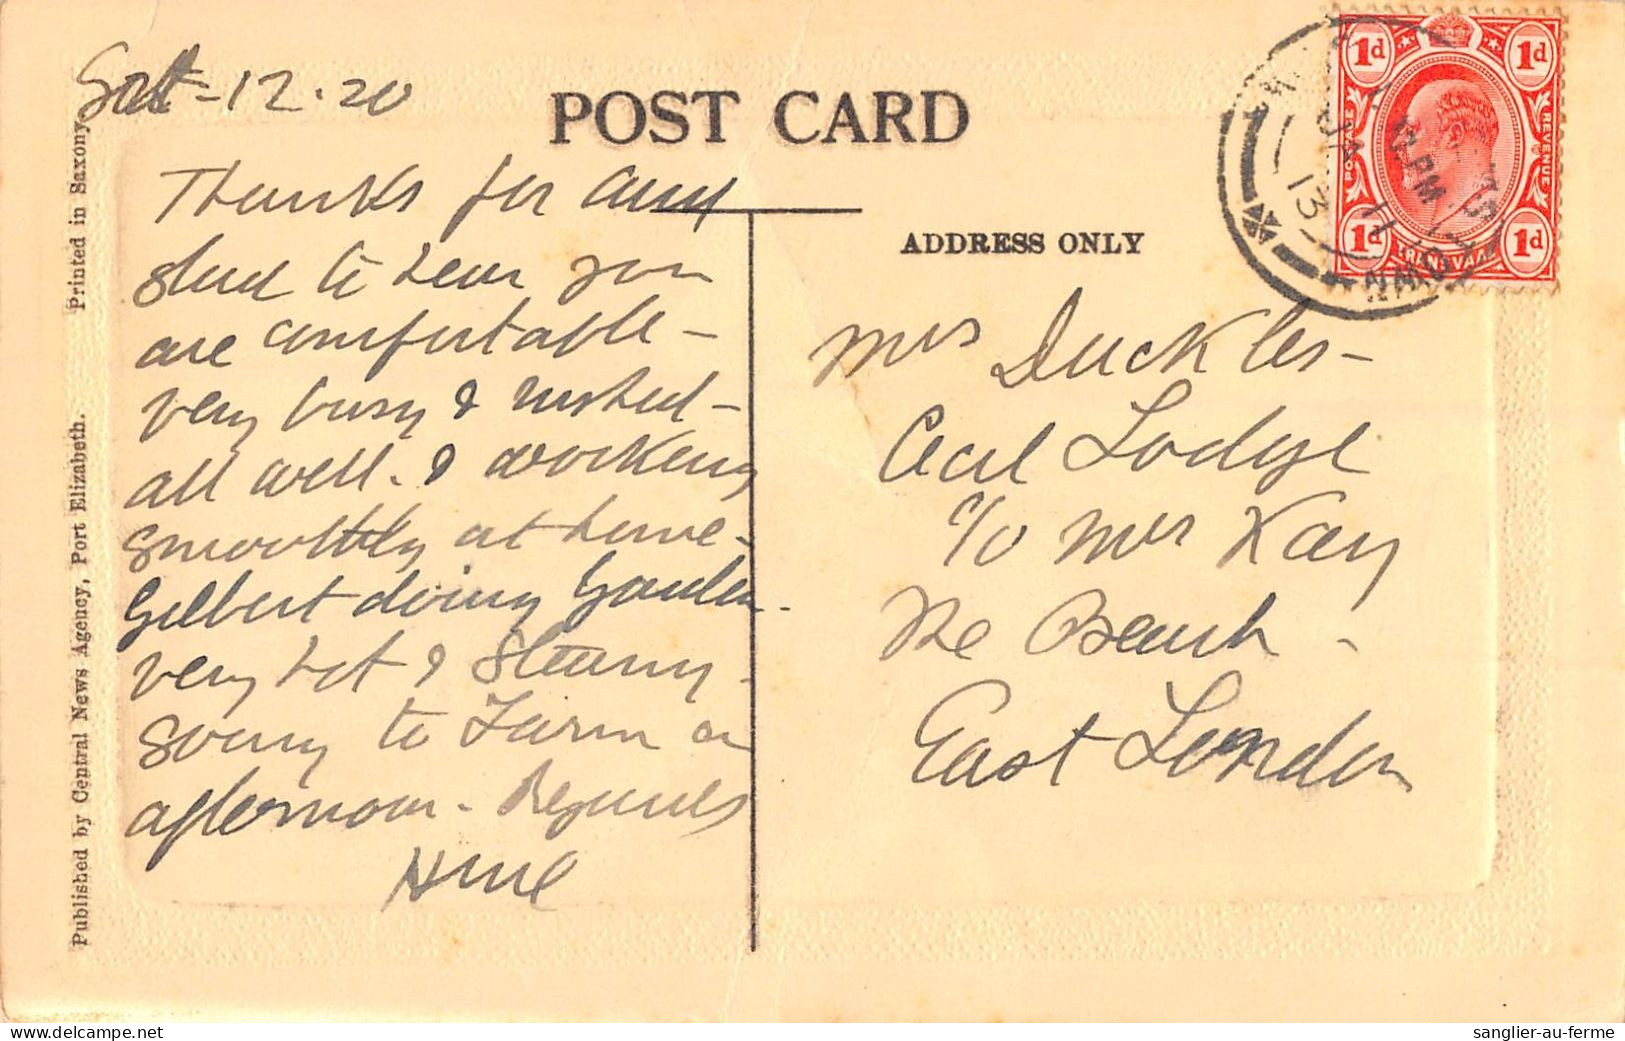 Sat - 12.20
POST CARD
Thanks for card
glad to hear you
are comfortable -
very busy & rushed -
all well. & working
smoothly at home -
Gilbert doing Garden -
very hot & Steamy -
going to Farm in
afternoon - Regards
ADDRESS ONLY
Mrs Duckles -
Cecil Lodge
c/o Mrs Kay
The Beach -
East London
Published by Central News Agency, Port Elizabeth. Printed in Saxony.
1d 1d
POSTAGE REVENUE
1d 1d
TRANSVAAL
JA 13 11
PM
sanglier-au-ferme
www.delcampe.net